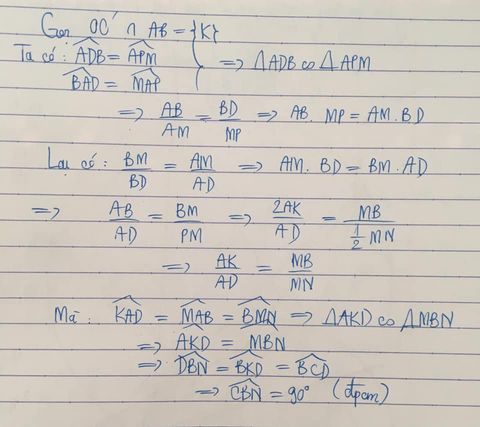 Gọi OC' ∩ AB = {K}
Ta có: ∠ADB = ∠APM
∠BAD = ∠MAP
} => ΔADB ∽ ΔAPM
=> AB/AM = BD/MP => AB. MP = AM. BD
Lại có: BM/BD = AM/AD => AM. BD = BM. AD
=> AB/AD = BM/PM => 2AK/AD = MB/(1/2 MN)
=> AK/AD = MB/MN
Mà: ∠KAD = ∠MAB = ∠BMN => ΔAKD ∽ ΔMBN
=> ∠AKD = ∠MBN
=> ∠DBN = ∠BKD = ∠BCD
=> ∠CBN = 90° (đpcm)